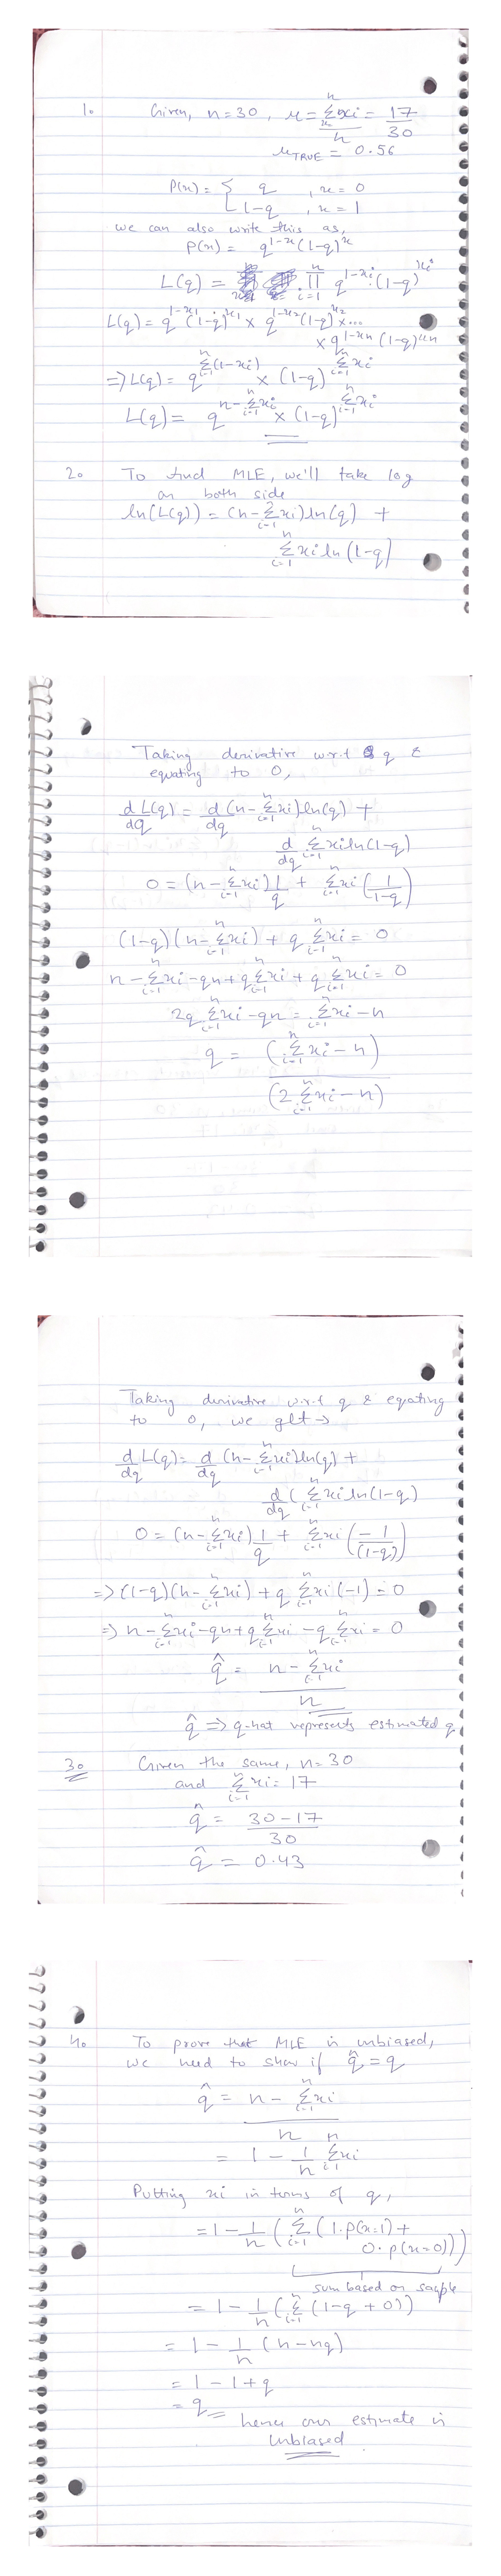 1. Given, n=30, x = n∑i=1 xi / n = 17/30
μTRUE = 0.56
P(x) = { q , x = 0
1-q , x = 1
we can also write this as,
P(x) = q^(1-x) (1-q)^x
L(q) = n∏i=1 q^(1-xi) (1-q)^xi
L(q) = q^(1-x1) (1-q)^x1 × q^(1-x2) (1-q)^x2 × ...
× q^(1-xn) (1-q)^xn
=> L(q) = q^(n∑i=1 (1-xi)) × (1-q)^(n∑i=1 xi)
L(q) = q^(n - n∑i=1 xi) × (1-q)^(n∑i=1 xi)
2. To find MLE, we'll take log
on both side
ln(L(q)) = (n - n∑i=1 xi) ln(q) +
n∑i=1 xi ln(1-q)
Taking derivative w.r.t q &
equating to 0,
d/dq L(q) = d/dq (n - n∑i=1 xi) ln(q) +
d/dq n∑i=1 xi ln(1-q)
0 = (n - n∑i=1 xi) 1/q + n∑i=1 xi (1/(1-q))
(1-q)(n - n∑i=1 xi) + q n∑i=1 xi = 0
n - n∑i=1 xi - qn + q n∑i=1 xi + q n∑i=1 xi = 0
2q n∑i=1 xi - qn = n∑i=1 xi - n
q = (n∑i=1 xi - n)
(2 n∑i=1 xi - n)
Taking derivative w.r.t q & equating
to 0, we get →
d/dq L(q) = d/dq (n - n∑i=1 xi) ln(q) +
d/dq (n∑i=1 xi ln(1-q)
0 = (n - n∑i=1 xi) 1/q + n∑i=1 xi (-1/(1-q))
=> (1-q)(n - n∑i=1 xi) + q n∑i=1 xi (-1) = 0
=> n - n∑i=1 xi - qn + q n∑i=1 xi - q n∑i=1 xi = 0
q̂ = n - n∑i=1 xi
n
q̂ => q-hat represents estimated q
3. Given the same, n=30
and n∑i=1 xi = 17
q̂ = 30-17
30
q̂ = 0.43
4. To prove that MLE is unbiased,
we need to show if q̂ = q
q̂ = n - n∑i=1 xi
n
= 1 - 1/n n∑i=1 xi
Putting xi in terms of q,
= 1 - 1/n (n∑i=1 (1.p(x=1) +
0.p(x=0)))
sum based on sample
= 1 - 1/n (n∑i=1 (1-q + 0))
= 1 - 1/n (n - nq)
= 1 - 1 + q
= q
hence our estimate is
unbiased